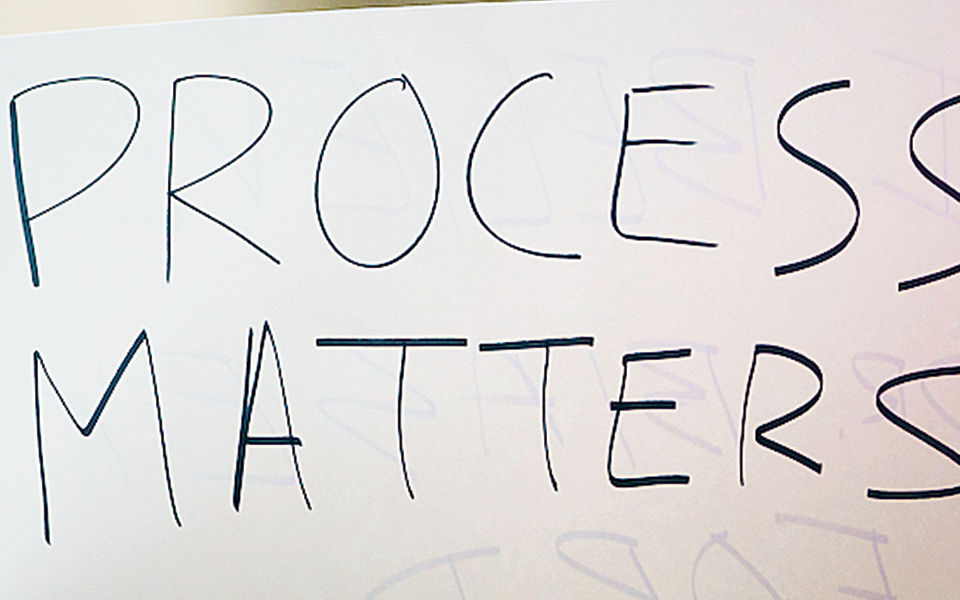 PROCESS
MATTERS